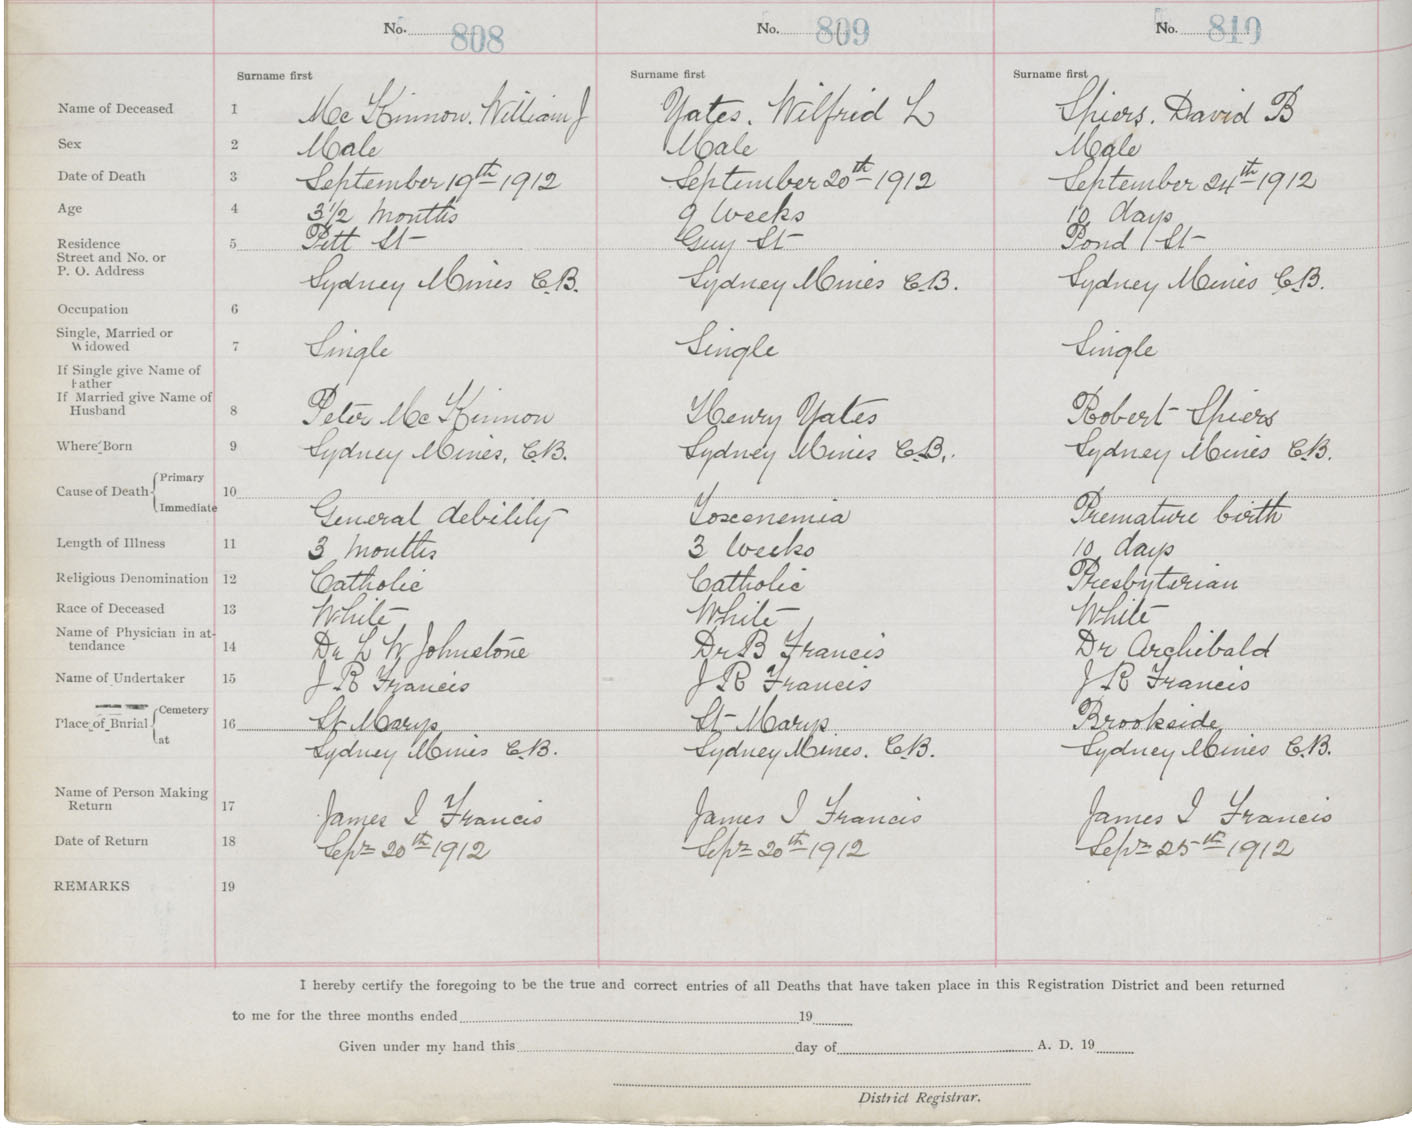 No. 808 No. 809 No. 810
Surname first Surname first Surname first
Name of Deceased 1 Mc Kinnon. William J Yates. Wilfrid L Spiers. David B
Sex 2 Male Male Male
Date of Death 3 September 19th 1912 September 20th 1912 September 24th 1912
Age 4 3 1/2 months 9 weeks 10 days
Residence 5 Pitt St Guy St Pond St
Street and No. or
P. O. Address Sydney Mines C.B. Sydney Mines C.B. Sydney Mines C.B.
Occupation 6
Single, Married or
Widowed 7 Single Single Single
If Single give Name of
Father
If Married give Name of
Husband 8 Peter Mc Kinnon Henry Yates Robert Spiers
Where Born 9 Sydney Mines, C.B. Sydney Mines C.B. Sydney Mines C.B.
Cause of Death Primary 10
Immediate General debility Toxcenemia Premature birth
Length of Illness 11 3 months 3 weeks 10 days
Religious Denomination 12 Catholic Catholic Presbyterian
Race of Deceased 13 White White White
Name of Physician in at-
tendance 14 Dr L W Johnstone Dr B Francis Dr Archibald
Name of Undertaker 15 J R Francis J R Francis J R Francis
Place of Burial Cemetery 16 St Marys St Marys Brookside
at Sydney Mines C.B. Sydney Mines. C.B. Sydney Mines C.B.
Name of Person Making
Return 17 James I Francis James I Francis James I Francis
Date of Return 18 Sepr 20th 1912 Sepr 20th 1912 Sepr 25th 1912
REMARKS 19
I hereby certify the foregoing to be the true and correct entries of all Deaths that have taken place in this Registration District and been returned
to me for the three months ended 19
Given under my hand this day of A. D. 19
District Registrar.